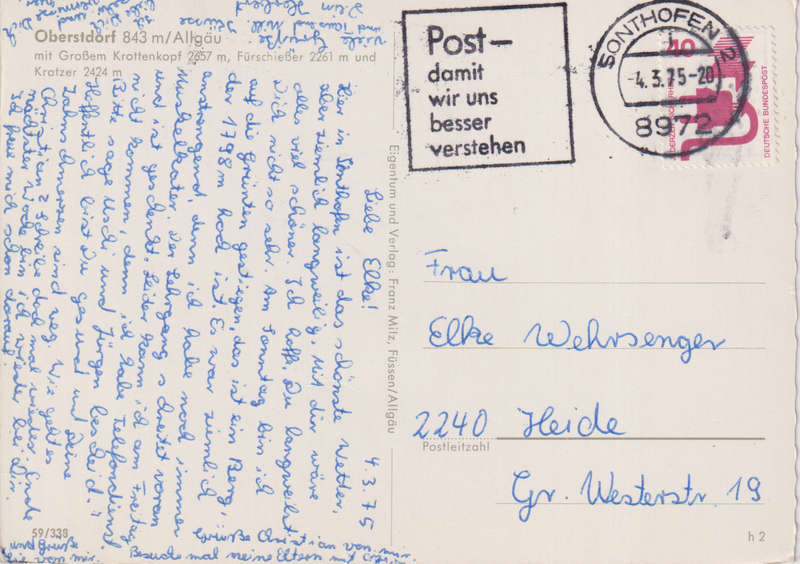 Oberstdorf 843 m/Allgäu
mit Großem Krottenkopf 2657 m, Fürschießer 2261 m und
Kratzer 2424 m
4.3.75
Liebe Elke!
Hier in Sonthofen ist das schönste Wetter,
aber ziemlich langweilig. Mit dir wäre
alles viel schöner. Ich hoffe, Du langweilst
Dich nicht so sehr. Am Sonntag bin ich
auf die Grünten gestiegen, das ist ein Berg,
der 1798m hoch ist. Es war ziemlich
anstrengend, denn ich habe noch immer
Muskelkater. Der Lehrgang schreitet voran
und ist geschenkt. Leider kann ich am Freitag
nicht kommen, denn ich habe Telefondienst
Bitte sage Uschi und Jürgen bescheid.
Hoffentlich bist Du gesund und Deine
Zahnschmerzen sind weg. Wie geht es
Christian? Schreibe doch mal wieder. Ende
nächster Woche bin ich wieder bei Dir.
Ich freue mich schon darauf.
Viele Grüße
und
Dein
Grüße Christian von mir.
Besuche mal meine Eltern mit
von mir.
59/338
Eigentum und Verlag: Franz Milz, Füssen/Allgäu
Post-
damit
wir uns
besser
verstehen
SONTHOFEN 2
-4.3.75-20
8972
DEUTSCHE BUNDESPOST
Frau
Elke Wehrsenger
2240 Heide
Postleitzahl
Gr. Westerstr. 19
h 2